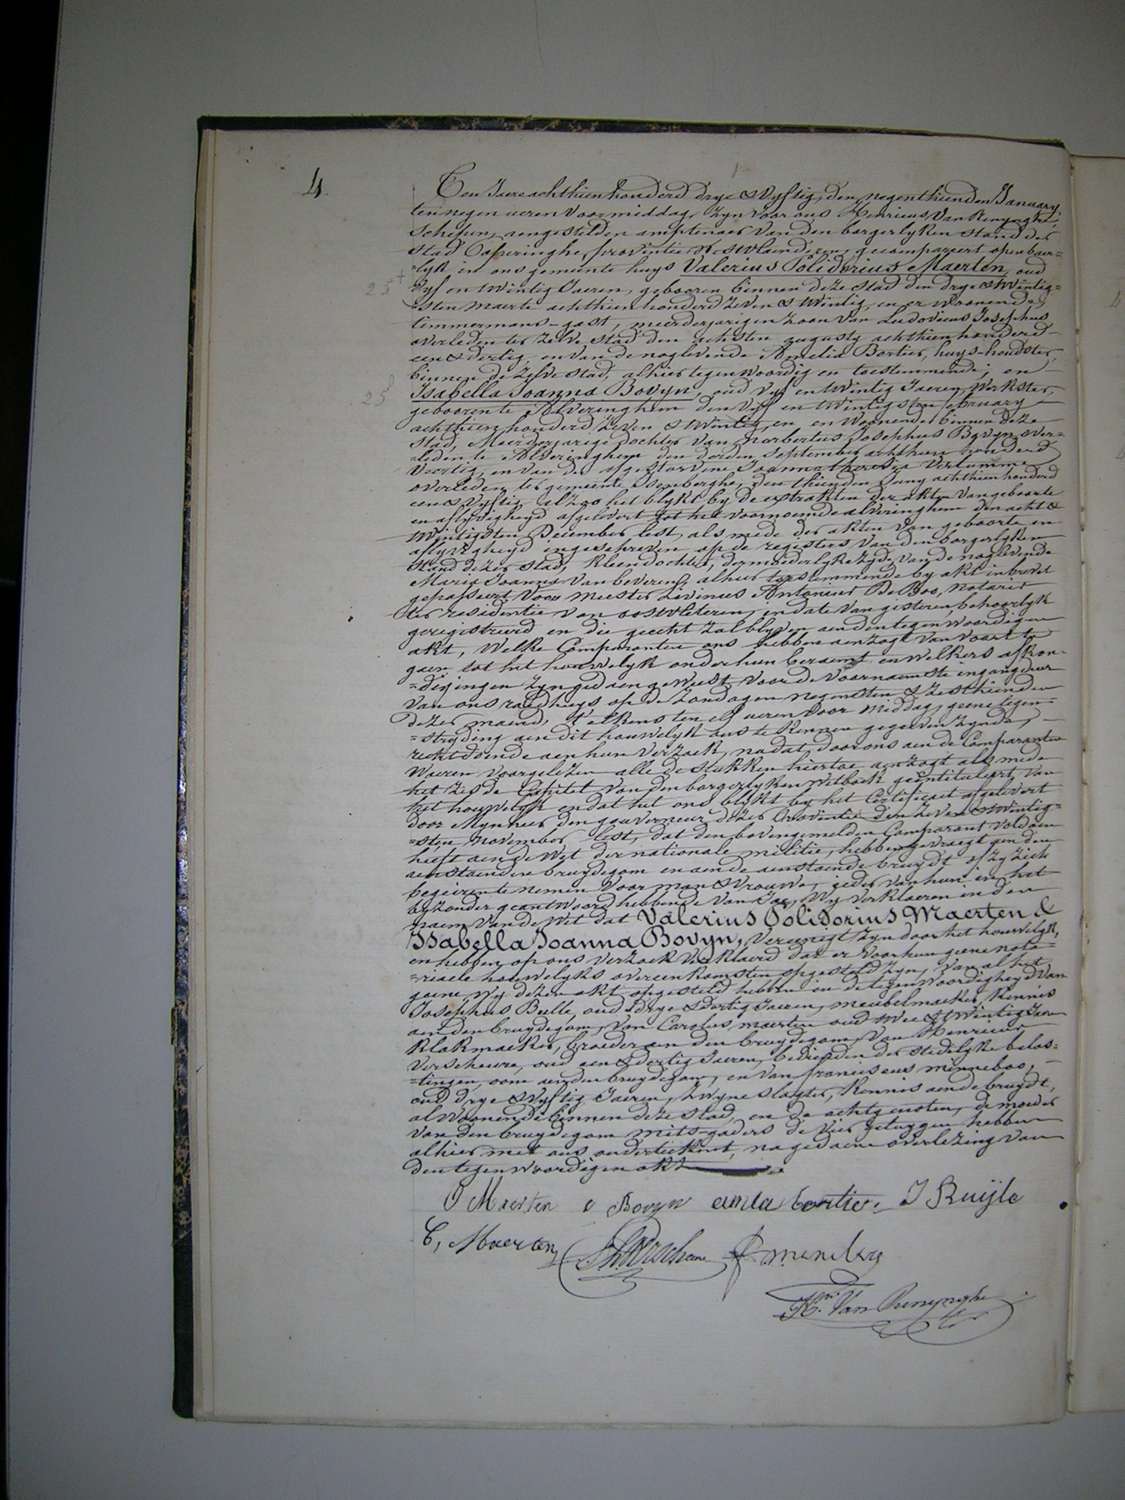 4
Ten Jaere achthien honderd drye & Vyftig, den negenthienden January
ten negen ueren Voormiddag, Zyn Voor ons Henricus Van Renynghe,
Schepen, aengestelden amptenaer Van den borgerlyken stand der
stad Poperinghe, provintie West Vlaenderen, gecompareert openbaer-
lyk in ons gemeente huys Valerius Polidorius Maerten, oud
25
Vyf en twintig Jaeren, gebooren binnen deze stad den drye & twintig-
sten Maerte achthien honderd Zeven & twintig, en er Woonende,
timmermans-gast, meerderjarigen Zoon Van Ludovicus Josephus
overleden ter Zelve stad den achsten augusty achthien honderd
een & dertig, en Van de nog levende Amelia Bortier, huys-houdster,
binnen de Zelve stad, alhier tegenwoordig en toestemmende, en
25
Isabella Joanna Bovyn, oud Vyf en twintig Jaeren, Werkster,
gebooren te Alveringhem den Vyf en twintigsten february
achthien honderd Zeven & twintig, en Woonende binnen deze
stad, Meerderjarige dochter Van Norbertus Josephus Bovyn over-
leden te Alveringhem den derden September achthien honderd
Veertig, en Van de afgestorvene Joanna theresia
overleden ter gemeente Isenberghe, den thienden Juny achthien honderd
een & Vyftig, alzoo het blykt by de extrakten der akten Van geboorte
en aflyvigheyd afgelevert tot het Voornoemde alveringhem den acht &
twintigsten December lest, als mede der akten Van geboorte en
aflyvigheyd ingeschreven op de registers Van den borgerlyken
stand dezer stad, kleendochter, der moederlyke Zyde Van de nog levende
Maria Joanna Van beveren, alhier toestemmende by akt in brevet
gepasseert Voor Meester Livinus Antonius De Bos, notaris
ter residentie Van oostvleteren, in date Van gisteren behoorlyk
geregistreerd en die gehecht Zal blyven aen den tegenwoordigen
akt, Welke Comparanten ons hebben aenzogt Van Voort te
gaen tot het houwelyk onder hun beraemt en Welkers afkon-
=digingen Zyn gedaen geweest Voor de Voornaemste ingangdeur
Van ons raedhuys op de Zondagen negensten & Zesthienden
dezer maend, t'elkens ten elf ueren Voor middag, geene tegen-
=strijding aen dit houwelyk ons te kennen gegeven Zynde,
recht doende aen hun Verzoek, na dat door ons aen de Comparanten
Waeren Voorgelezen alle de stukken hiertoe aenzogt als mede
het Zesde Capitel Van den borgerlyken Wetboek geïntituleert, Van
het houwelyk en dat het ons blykt by het Certificaet afgelevert
door Mynheer den gouverneur dezer provintie den Zeven & twintig-
=sten November lest, dat den bovengemelden Comparant Voldaen
heeft aen de Wet der nationale militie, hebben gevraegt aen den
aenstaenden bruydegom en aen de aenstaende bruydt of Zy Zich
begeeren te nemen Voor man & Vrouwe, ieder Van hun in het
byzonder geantwoord hebbende Van Jae, Wy Verklaeren in den
naem Van de Wet dat Valerius Polidorius Maerten &
Isabella Joanna Bovyn, Vereenigt Zyn door het houwelyk,
en hebben op ons Verzoek Verklaerd dat er Voor hun geene nota-
=rieele houwelyks overeenkomsten opgesteld Zyn, Van al het
geene Wy dezen akt opgesteld hebben in de tegenwoordigheyd Van
Josephus Ruelle, oud drye & dertig Jaeren, meubelmaeker, kennis
aen den bruydegom, Van Carolus maerten oud twee & twintig Jaeren
klakmaeker, broeder aen den bruydegom, Van Henricus
Verscheure, oud een & dertig Jaeren, bediende der stedelyke belas-
=tingen, oom aen den bruydegom, en Van franciscus minneboo,
oud drye & Vyftig Jaeren, Zwyne slagter, kennis aen de bruydt,
al Woonende binnen deze stad, en de achtgenoten, de moeder
Van den bruydegom mitsgaders de Vier getuygen hebben
alhier met ons onderteekent, na gedaene overlezing Van
den tegenwoordigen akt
Maerten Bovyn amelia bortier. J Ruijle
C, Maerten
Hri. Van Renynghe